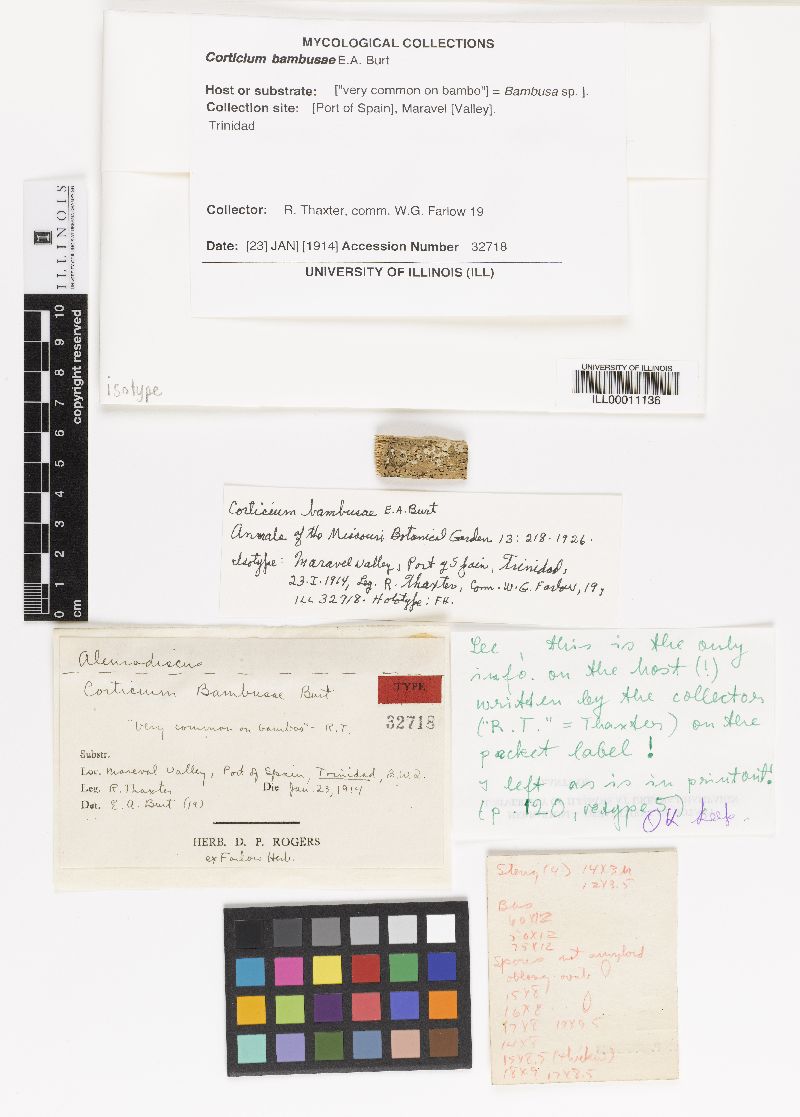 MYCOLOGICAL COLLECTIONS
Corticium bambusae E.A. Burt
Host or substrate: ["very common on bambo"] = Bambusa sp. ].
Collection site: [Port of Spain], Maravel [Valley].
Trinidad
Collector: R. Thaxter, comm. W.G. Farlow 19
Date: [23] JAN] [1914] Accession Number 32718
UNIVERSITY OF ILLINOIS (ILL)
isotype
UNIVERSITY OF ILLINOIS
ILL00011136
ILLINOIS
copyright reserved
10
9
8
7
6
5
4
3
2
1
0
cm
Corticium bambusae E.A. Burt
Annals of the Missouri Botanical Garden 13: 218. 1926.
Isotype: Maravel Valley, Port of Spain, Trinidad,
23.I.1914, Leg. R. Thaxter, Com. W.G. Farlow, 19,
ILL 32718. Holotype: FH.
Aleurodiscus
Corticium Bambusae Burt
TYPE
32718
"Very common on bamboo" - R.T.
Substr.
Loc. Maraval Valley, Port of Spain, Trinidad, B.W.I.
Leg. R. Thaxter Die Jan. 23, 1914
Det. E. A. Burt (19)
HERB. D. P. ROGERS
ex Farlow Herb.
Lee, this is the only
info. on the host (!)
written by the collector
("R.T." = Thaxter) on the
packet label!
I left as is in printout!
(p 120, retype 5)
OK keep.
Sterig (4) 14X3
12X3.5
Bas
60X12
50X12
75X12
Spores not amyloid
oblong ovate
15X8
16X8
17X8 17X9.5
14X8
15X8.5 (thicker)
18X9 17X8.5